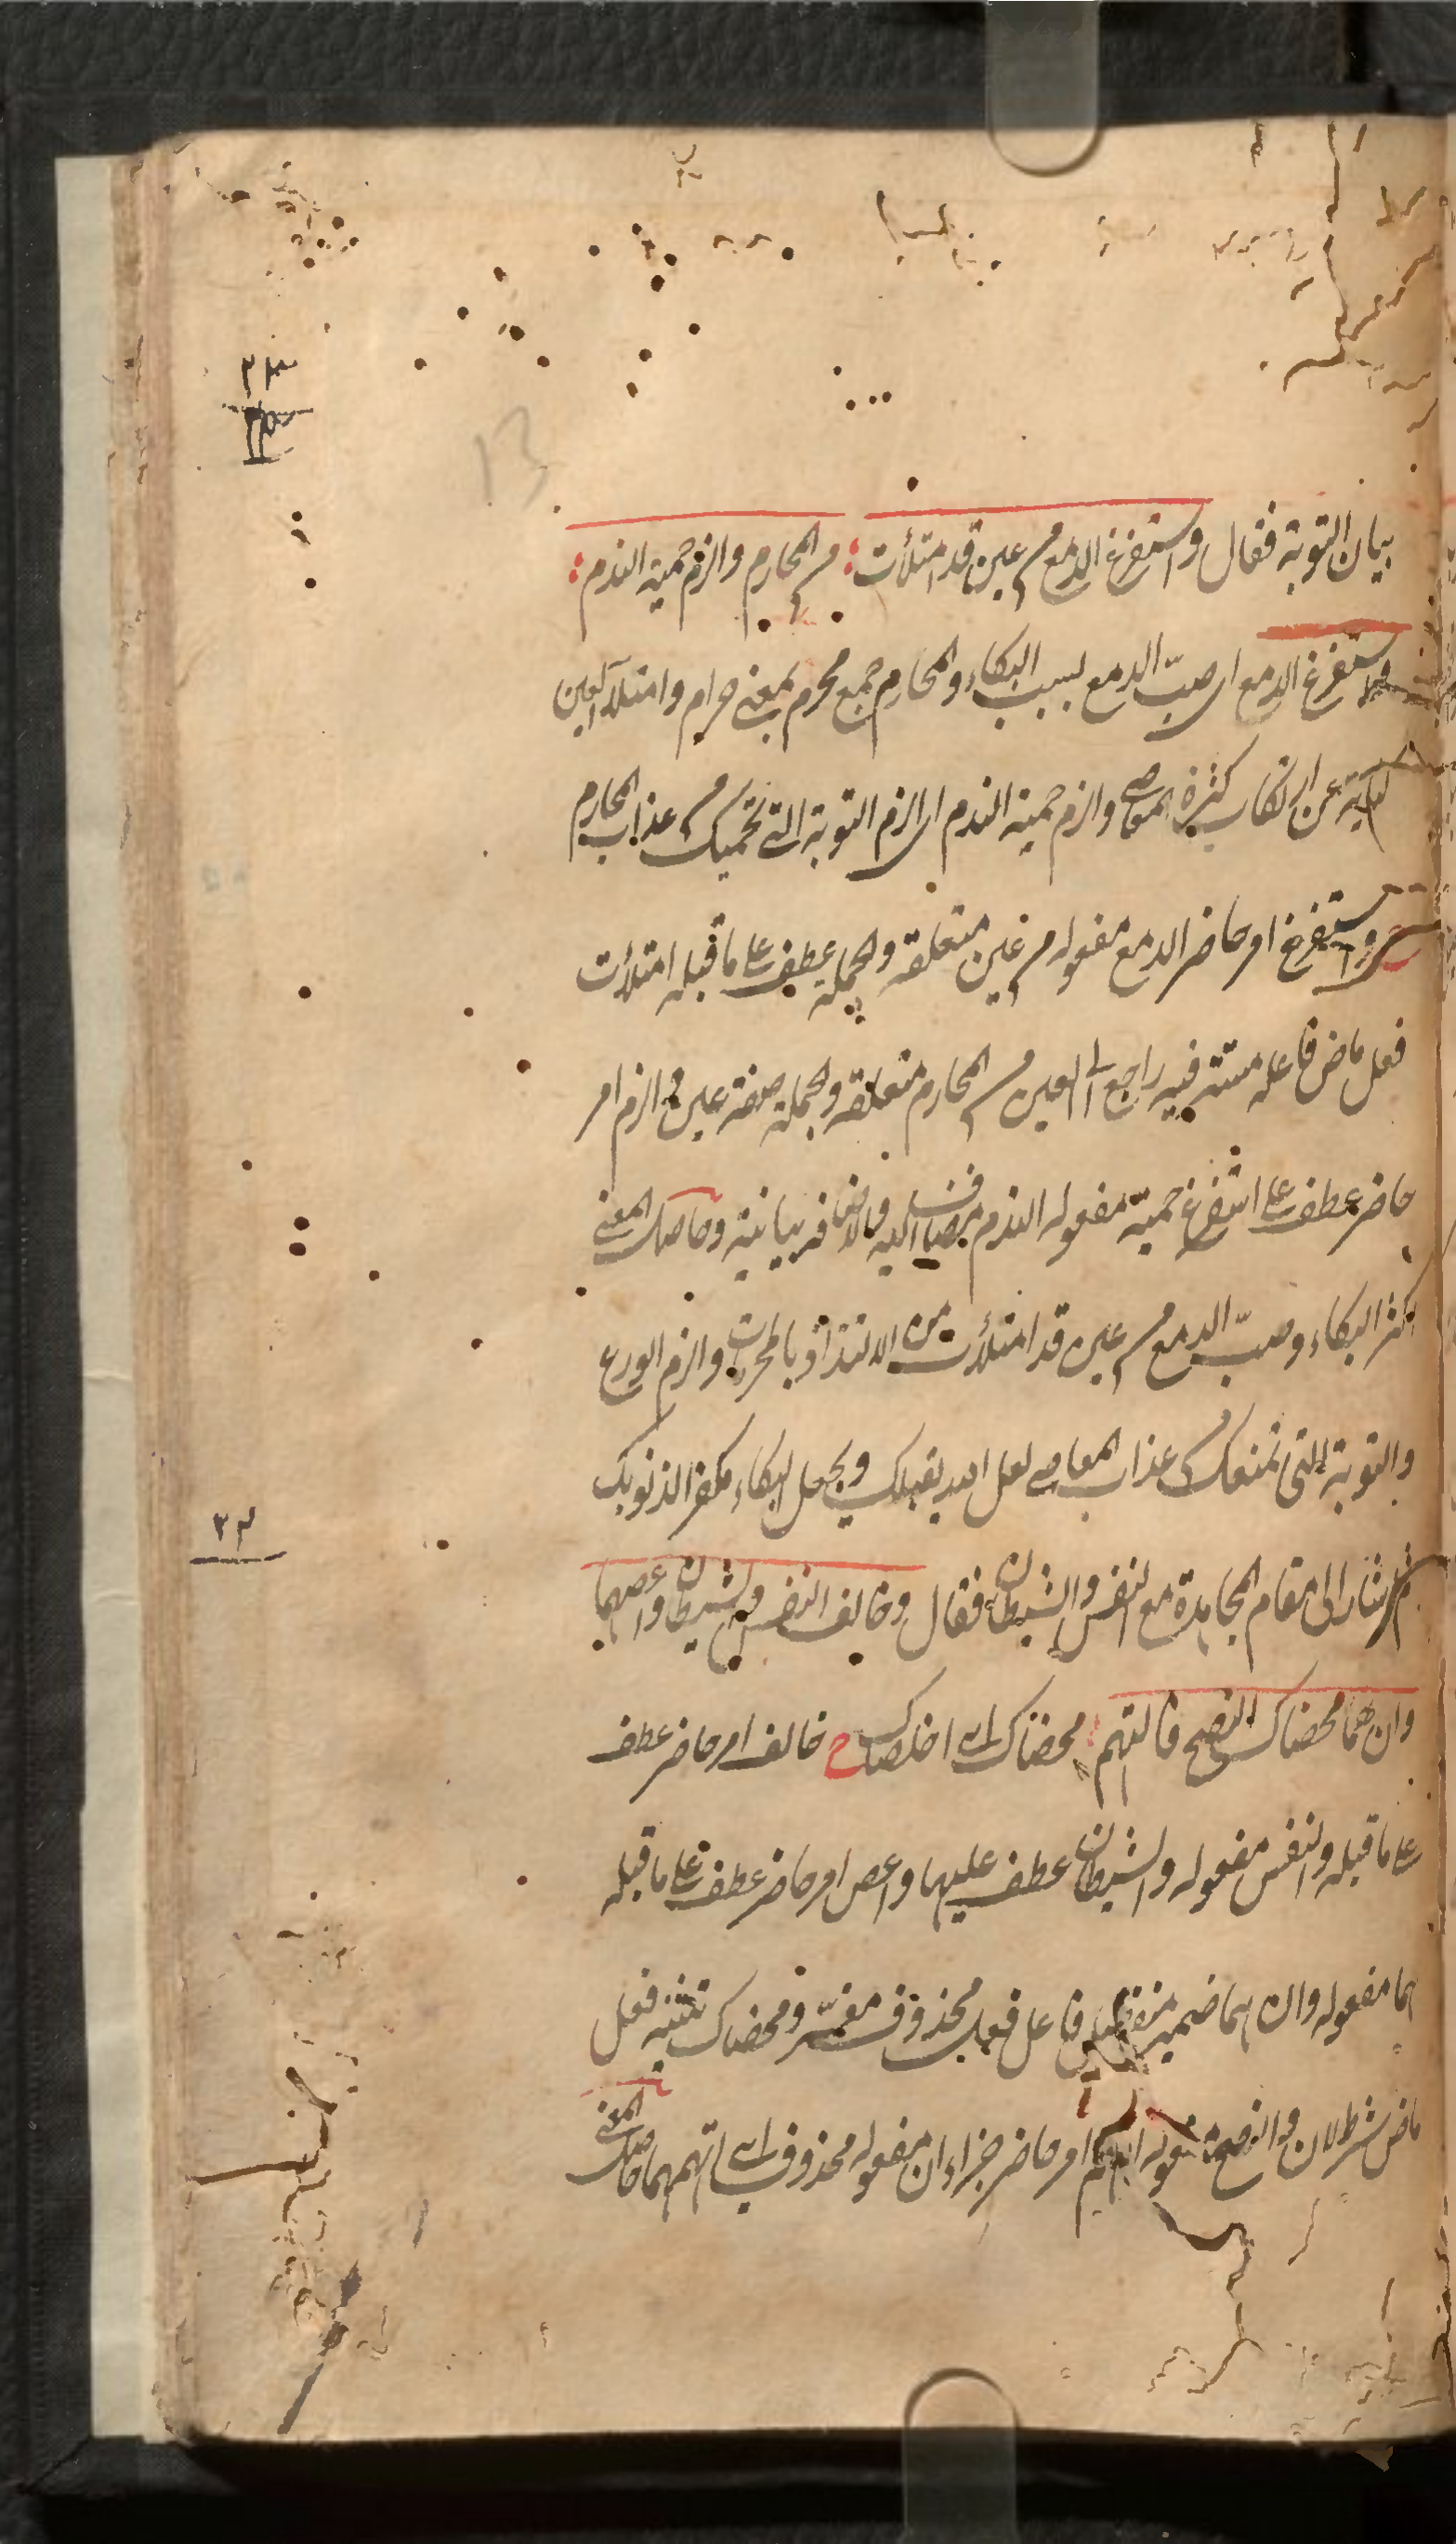 ٢٣
١٣
13
بيان التوبة فقال واستفرغ الدمع من عين قد امتلأت من المحارم والزم حمية الندم
واستفرغ الدمع اى صبّ الدمع بسبب البكاء والمحارم جمع محرم بمعنى حرام وامتلاء العين
كناية عن ارتكاب كثرة المعاصى والزم حمية الندم اى الزم التوبة التى تحميك من عذاب المحارم
واستفرغ امر حاضر الدمع مفعوله من عين متعلقه والجملة عطف على ما قبله امتلأت
فعل ماض فاعله مستتر فيه راجع الى العين من المحارم متعلقه والجملة صفة عين والزم امر
حاضر عطف على استفرغ حمية مفعوله الندم مضاف اليه والاضافة بيانية وحاصل المعنى
اكثر البكاء وصبّ الدمع من عين قد امتلأت من الالتذاذ بالمحرمات والزم الورع
والتوبة التى تمنعك من عذاب المعاصى لعل الله يقبلك ويجعل البكاء مكفرا لذنوبك
ثم اشار الى مقام المجاهدة مع النفس والشيطان فقال وخالف النفس والشيطان واعصهما
وان هما محضاك النصح فاتهم محضاك اى اخلصاك خالف امر حاضر عطف
على ما قبله والنفس مفعوله والشيطان عطف عليها واعص امر حاضر عطف على ما قبله
هما مفعوله وان هما ضمير منفصل فاعل فعل محذوف مفسّر ومحضاك تثنيه فعل
ماض شرط لان والنصح مفعوله اتهم امر حاضر جزاء ان مفعوله محذوف اى اتهمهما حاصل المعنى
٣٤